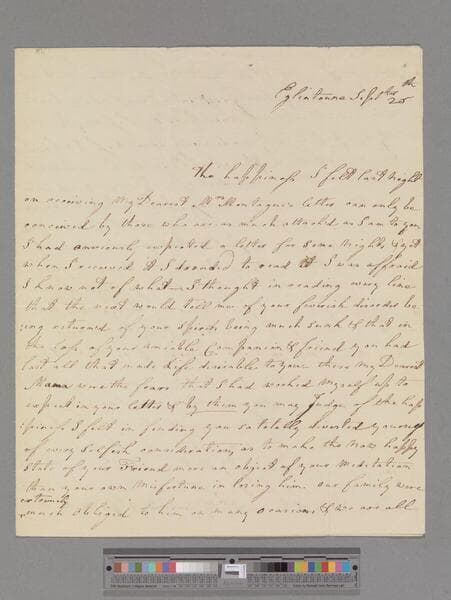 Eglintoune Septber 25th
The happiness I felt last Night
on receiving My Dearest Mrs Montagu's letter can only be
conceived by those who are as much attached as I am to you
I had anxiously expected a letter for some Nights, & yet
when I received it I dreaded to read it I was affraid
I know not of what I thought in reading every line
that the next would tell me of your feverish disorder be-
ing returned of your Spirits being much sunk & that in
the loss of your amiable Companion & friend you had
lost all that made Life desirable to you these My Dearest
Mama were the fears that I had worked Myself up to
expect in your letter & by them you may Judge of the hap
piness I felt in finding you so totally divested yourself
of every Selfish consideration, as to make the Now happy
State of your Friend more an object of your Meditation
than your own Misfortune in losing him our family were
extremely
much obliged to him on many occasions & we are all